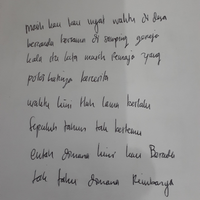 masih kau kau ingat waktu di desa
bercanda bersama di samping gereja
kala itu kita masih remaja yang
polos hatinya bercerita
waktu kini tlah lama berlalu
sepuluh tahun tak bertemu
entah dimana kini kau berada
tak tahu dimana rimbanya